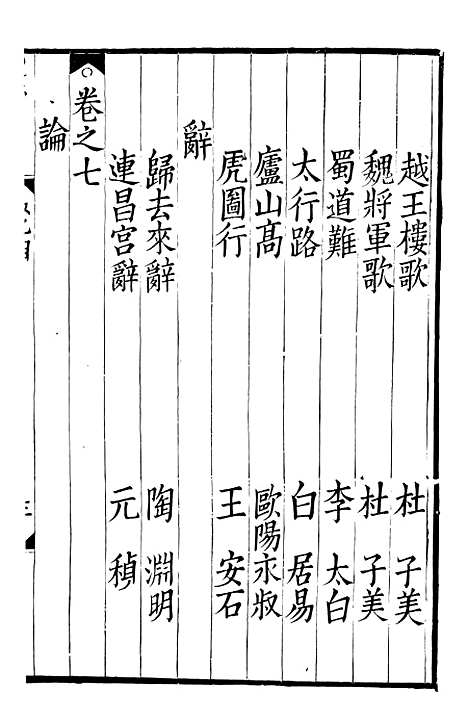 越王樓歌 杜子美
魏將軍歌 杜子美
蜀道難 李太白
太行路 白居易
廬山髙 歐陽永叔
虎圖行 王安石
辭
歸去來辭 陶淵明
連昌宮辭 元稹
卷之七
論